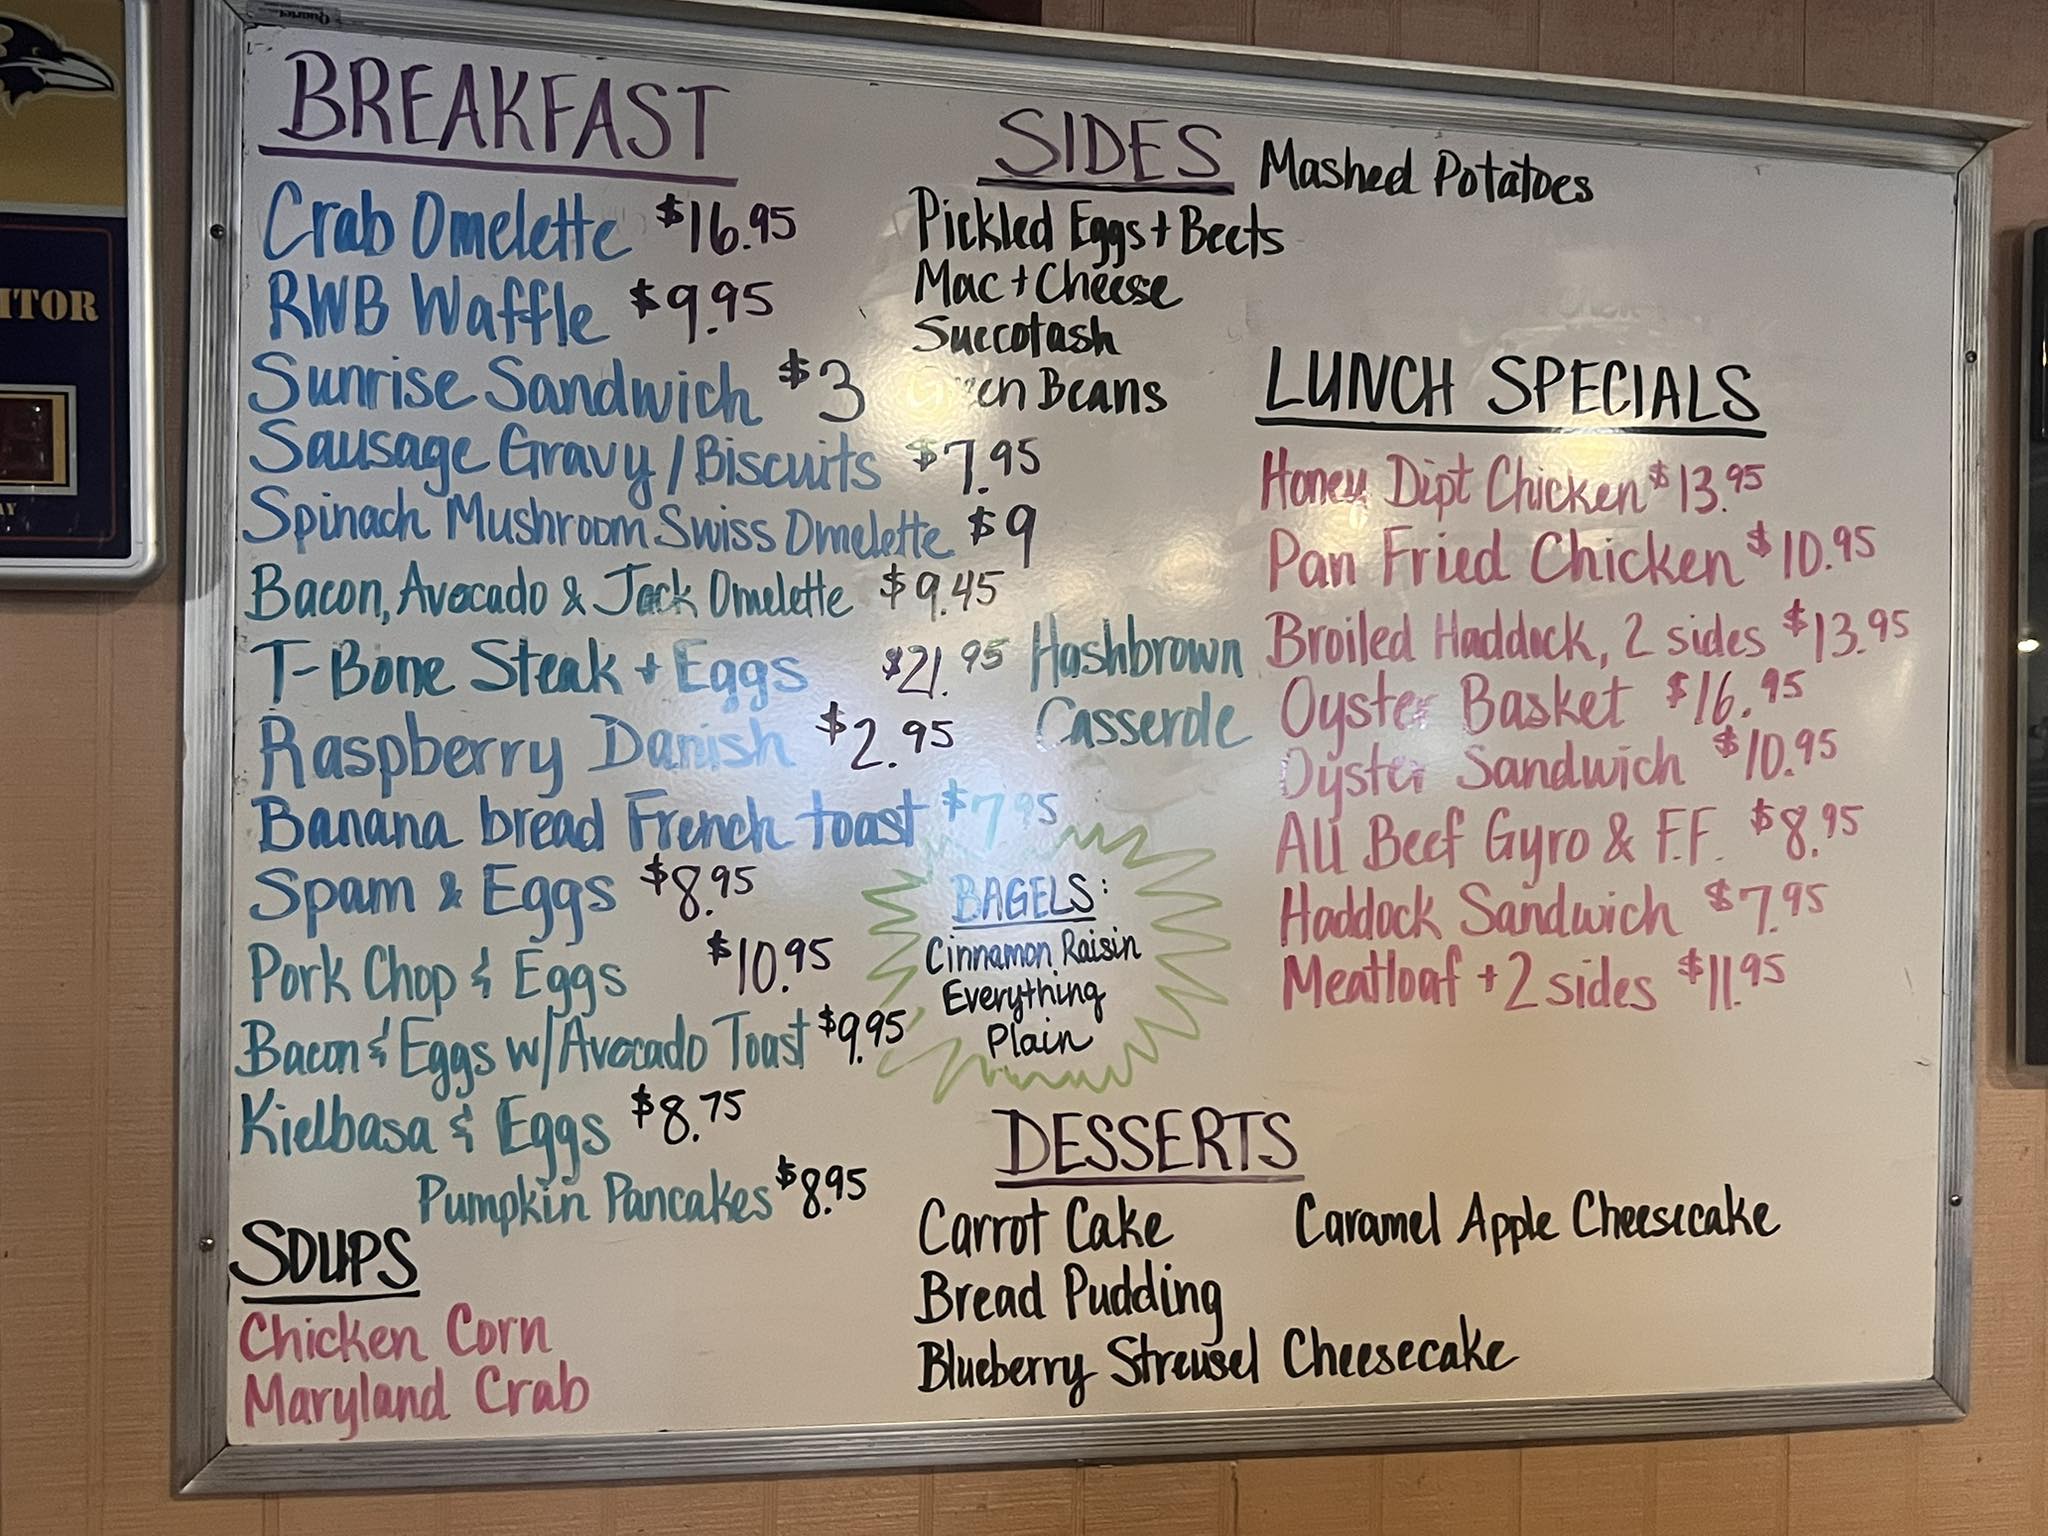 BREAKFAST
Crab Omelette $16.95
RWB Waffle $9.95
Sunrise Sandwich $3
Sausage Gravy / Biscuits $7.95
Spinach Mushroom Swiss Omelette $9
Bacon, Avocado & Jack Omelette $9.45
T-Bone Steak + Eggs $21.95
Hashbrown
Casserole
Raspberry Danish $2.95
Banana bread French toast $7.95
Spam & Eggs $8.95
Pork Chop & Eggs $10.95
Bacon & Eggs w/ Avocado Toast $9.95
Kielbasa & Eggs $8.75
Pumpkin Pancakes $8.95
SOUPS
Chicken Corn
Maryland Crab
SIDES
Mashed Potatoes
Pickled Eggs + Beets
Mac + Cheese
Succotash
Green Beans
BAGELS:
Cinnamon Raisin
Everything
Plain
LUNCH SPECIALS
Honey Dipt Chicken $13.95
Pan Fried Chicken $10.95
Broiled Haddock, 2 sides $13.95
Oyster Basket $16.95
Oyster Sandwich $10.95
All Beef Gyro & F.F. $8.95
Haddock Sandwich $7.95
Meatloaf + 2 sides $11.95
DESSERTS
Carrot Cake
Caramel Apple Cheesecake
Bread Pudding
Blueberry Streusel Cheesecake
Quartet
ITOR
AY